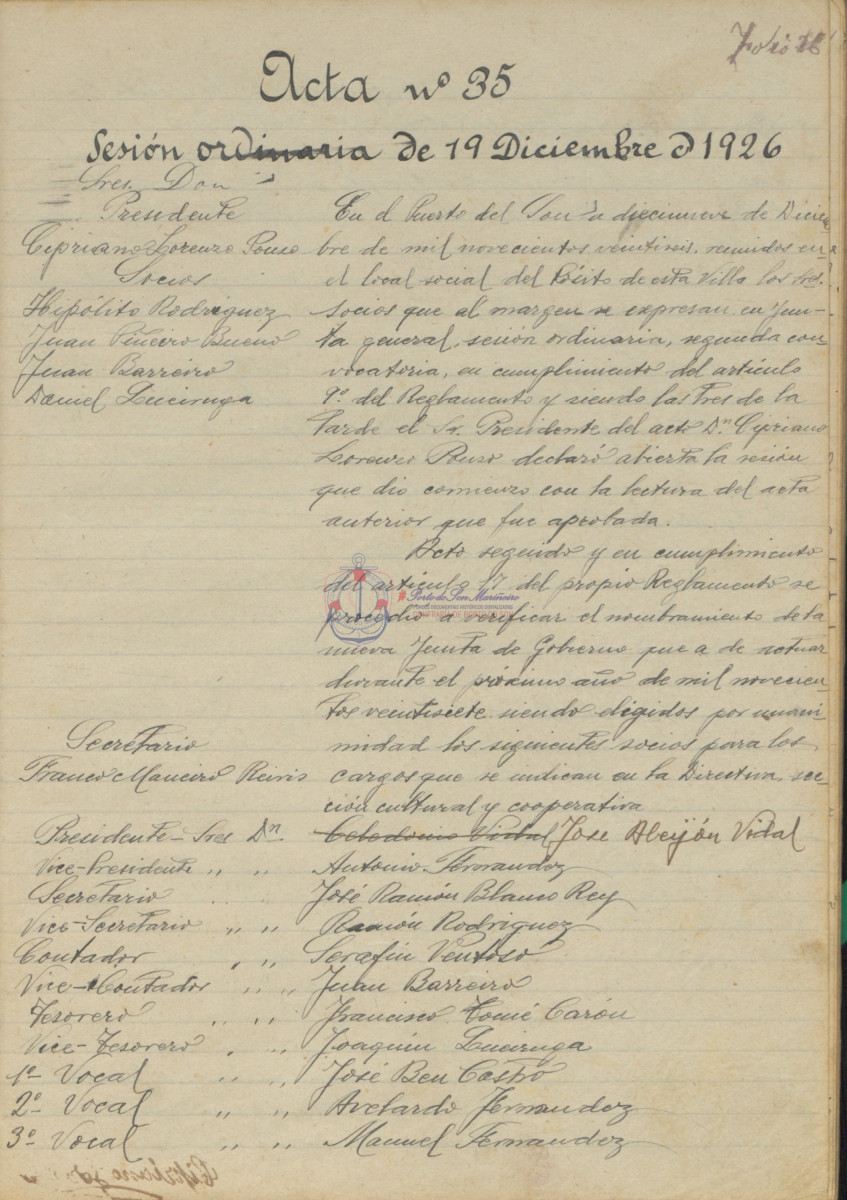 Folio 26
Acta nº 35
Sesión ordinaria de 19 Diciembre d 1926
Sres. Don
Presidente
Cipriano Lorenzo Pouso
Socios
Hipólito Rodriguez
Juan Piñeiro Bueno
Juan Barreiro
Daniel Luciruga
En el Puerto del Son a diecinueve de Diciem-
bre de mil novecientos veintiseis, reunidos en
el local social del Pósito de esta Villa los Sres.
socios que al margen se expresan en Jun-
ta general, sesión ordinaria, segunda con-
vocatoria, en cumplimiento del artículo
9º del Reglamento y siendo las tres de la
tarde el Sr. Presidente del acto Dn Cipriano
Lorenzo Pouso declaró abierta la sesión
que dio comienzo con la lectura del acta
anterior que fue aprobada.
Acto seguido y en cumplimiento
del artículo 17 del propio Reglamento se
procedio a verificar el nombramiento de la
nueva Junta de Gobierno que a de actuar
durante el próximo año de mil novecien-
tos veintisiete siendo elegidos por unani-
midad los siguientes socios para los
cargos que se indican en la Directiva, sec-
ción cultural y cooperativa
Secretario
Franco Maneiro Reiris
Presidente - Sres Dn. Celedonio Vidal Jose Abeijón Vidal
Vice-Presidente " " Antonio Fernandez
Secretario José Ramón Blanco Rey
Vice-Secretario " " Ramón Rodriguez
Contador " " Serafin Ventoso
Vice-Contador " " Juan Barreiro
Tesorero " " Francisco Tomé Carón
Vice-Tesorero " " Joaquin Luciruga
1º Vocal " " José Ben Castro
2º Vocal " " Avelardo Fernandez
3º Vocal " " Manuel Fernandez
Porto do Son Mariñeiro